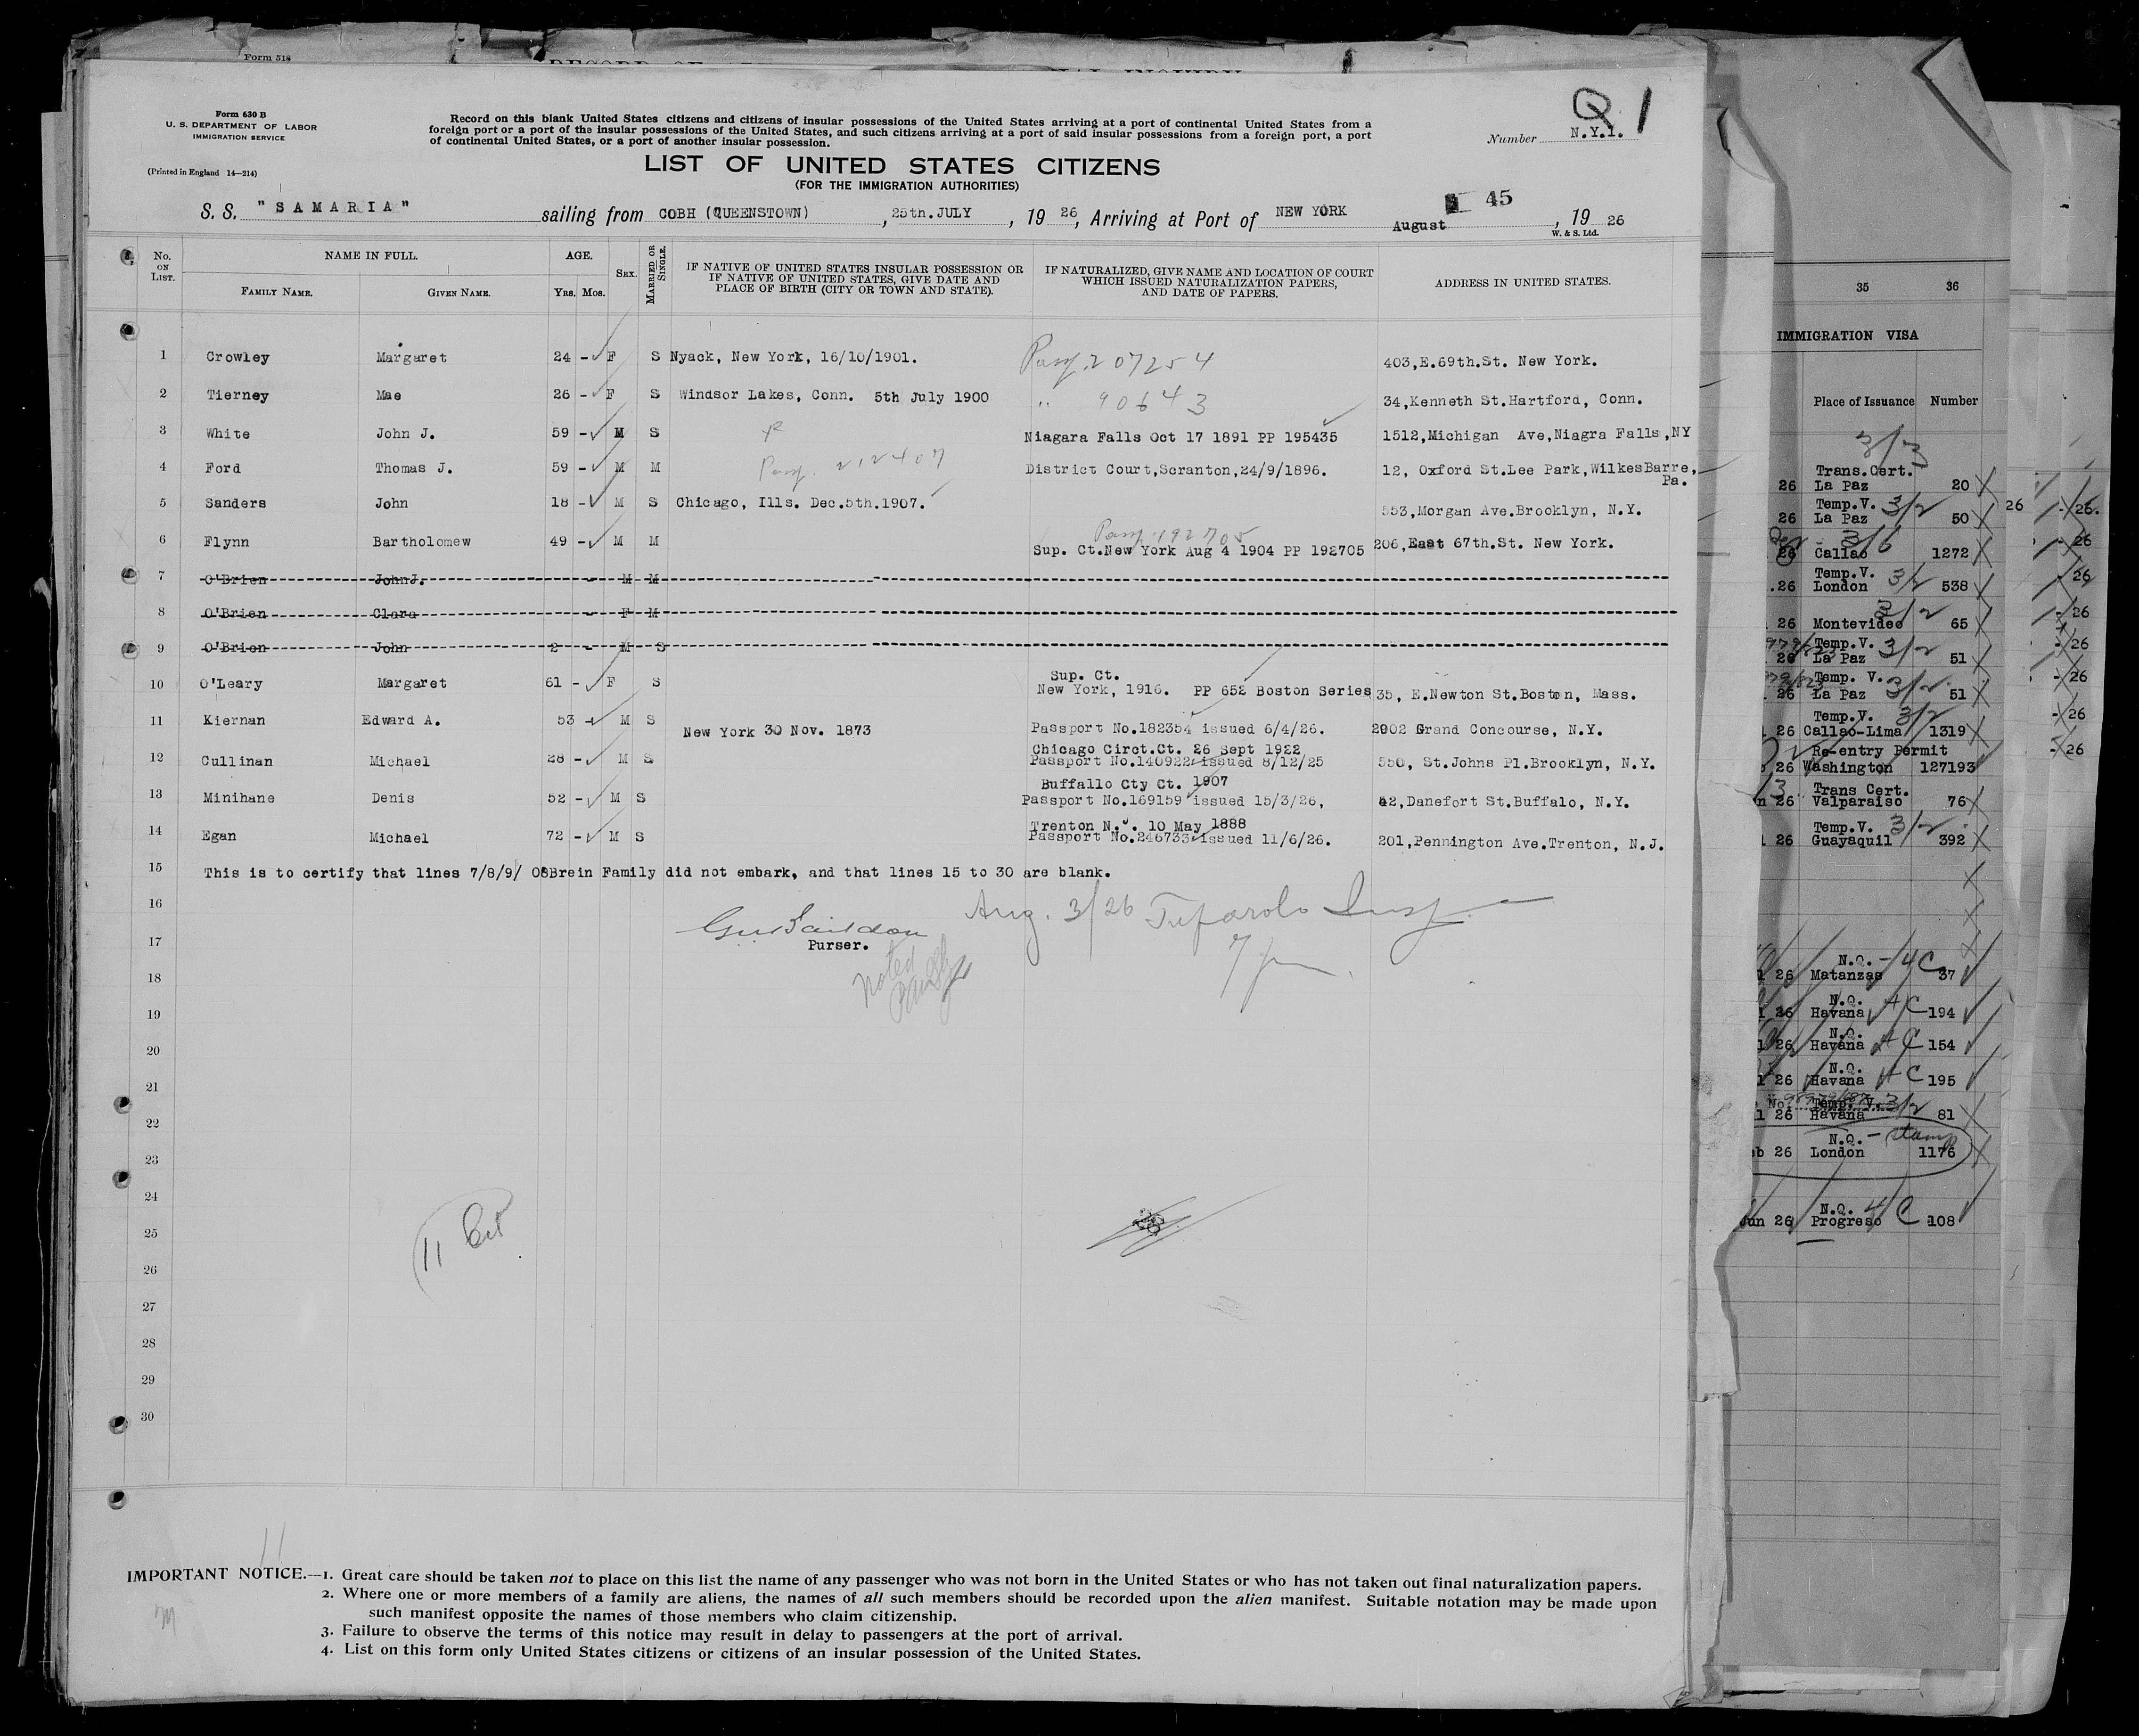 Form 518
Form 630 B
U. S. DEPARTMENT OF LABOR
IMMIGRATION SERVICE
(Printed in England 14—214)
Record on this blank United States citizens and citizens of insular possessions of the United States arriving at a port of continental United States from a
foreign port or a port of the insular possessions of the United States, and such citizens arriving at a port of said insular possessions from a foreign port, a port
of continental United States, or a port of another insular possession.
Q 1
Number N.Y.1.
LIST OF UNITED STATES CITIZENS
(FOR THE IMMIGRATION AUTHORITIES)
S. S. "SAMARIA" sailing from COBH (QUEENSTOWN), 25th.JULY, 19 26, Arriving at Port of NEW YORK August 45, 19 26
W. & S. Ltd.
No. ON LIST. NAME IN FULL. FAMILY NAME. GIVEN NAME. AGE. YRS. MOS. SEX. MARRIED OR SINGLE. IF NATIVE OF UNITED STATES INSULAR POSSESSION OR IF NATIVE OF UNITED STATES, GIVE DATE AND PLACE OF BIRTH (CITY OR TOWN AND STATE). IF NATURALIZED, GIVE NAME AND LOCATION OF COURT WHICH ISSUED NATURALIZATION PAPERS, AND DATE OF PAPERS. ADDRESS IN UNITED STATES.
1 Crowley Margaret 24 - F S Nyack, New York, 16/10/1901. 207254 403,E.69th.St. New York.
2 Tierney Mae 26 - F S Windsor Lakes, Conn. 5th July 1900 " 90643 34,Kenneth St.Hartford, Conn.
3 White John J. 59 - M S Niagara Falls Oct 17 1891 PP 195435 1512,Michigan Ave,Niagra Falls,NY
4 Ford Thomas J. 59 - M M 212407 District Court,Scranton,24/9/1896. 12, Oxford St.Lee Park,WilkesBarre,
Pa.
5 Sanders John 18 - M S Chicago, Ills. Dec.5th.1907. 553,Morgan Ave.Brooklyn, N.Y.
192705
6 Flynn Bartholomew 49 - M M Sup. Ct.New York Aug 4 1904 PP 192705 206,East 67th.St. New York.
7 O'Brien JohnJ. - M M
8 O'Brien Clara - F M
9 O'Brien John 2 - M S
Sup. Ct.
10 O'Leary Margaret 61 - F S New York, 1916. PP 652 Boston Series 35, E.Newton St.Boston, Mass.
11 Kiernan Edward A. 53 - M S New York 30 Nov. 1873 Passport No.182354 issued 6/4/26. 2902 Grand Concourse, N.Y.
Chicago Circt.Ct. 26 Sept 1922
12 Cullinan Michael 28 - M S Passport No.140922 issued 8/12/25 550, St.Johns Pl.Brooklyn, N.Y.
Buffallo Cty Ct. 1907
13 Minihane Denis 52 - M S Passport No.169159 issued 15/3/26, 42,Danefort St.Buffalo, N.Y.
Trenton N.J. 10 May 1888
14 Egan Michael 72 - M S Passport No.246733 issued 11/6/26. 201,Pennington Ave.Trenton, N.J.
15 This is to certify that lines 7/8/9/ O8Brein Family did not embark, and that lines 15 to 30 are blank.
16 Aug. 3/26
17 Purser.
noted
18
19
20
21
22
23
24
25
26
27
28
29
30
11
11
IMPORTANT NOTICE.—1. Great care should be taken not to place on this list the name of any passenger who was not born in the United States or who has not taken out final naturalization papers.
2. Where one or more members of a family are aliens, the names of all such members should be recorded upon the alien manifest. Suitable notation may be made upon
such manifest opposite the names of those members who claim citizenship.
3. Failure to observe the terms of this notice may result in delay to passengers at the port of arrival.
4. List on this form only United States citizens or citizens of an insular possession of the United States.
35 36
IMMIGRATION VISA
Place of Issuance Number
3/3
Trans.Cert.
26 La Paz 20
Temp.V. 3/2
26 La Paz 50 26 26.
3/6
26 Callao 1272 26
Temp.V. 3/2
.26 London 538 26
3/2
26 Montevideo 65 26
Temp.V. 3/2
26 La Paz 51 26
Temp. V. 3/2
26 La Paz 51 26
Temp.V. 3/2
26 Callao-Lima 1319 26
Re-entry Permit
26 Washington 127193 26
Trans Cert.
26 Valparaiso 76
Temp.V. 3/2
26 Guayaquil 392
N.Q. - 4C
26 Matanzas 37
N.Q. 4C
26 Havana 194
N.Q. 4C
26 Havana 154
N.Q. 4C
26 Havana 195
Temp. V. 3/2
26 Havana 81
N.Q. - stamp
26 London 1176
N.Q. 4C
Jun 26 Progreso 108